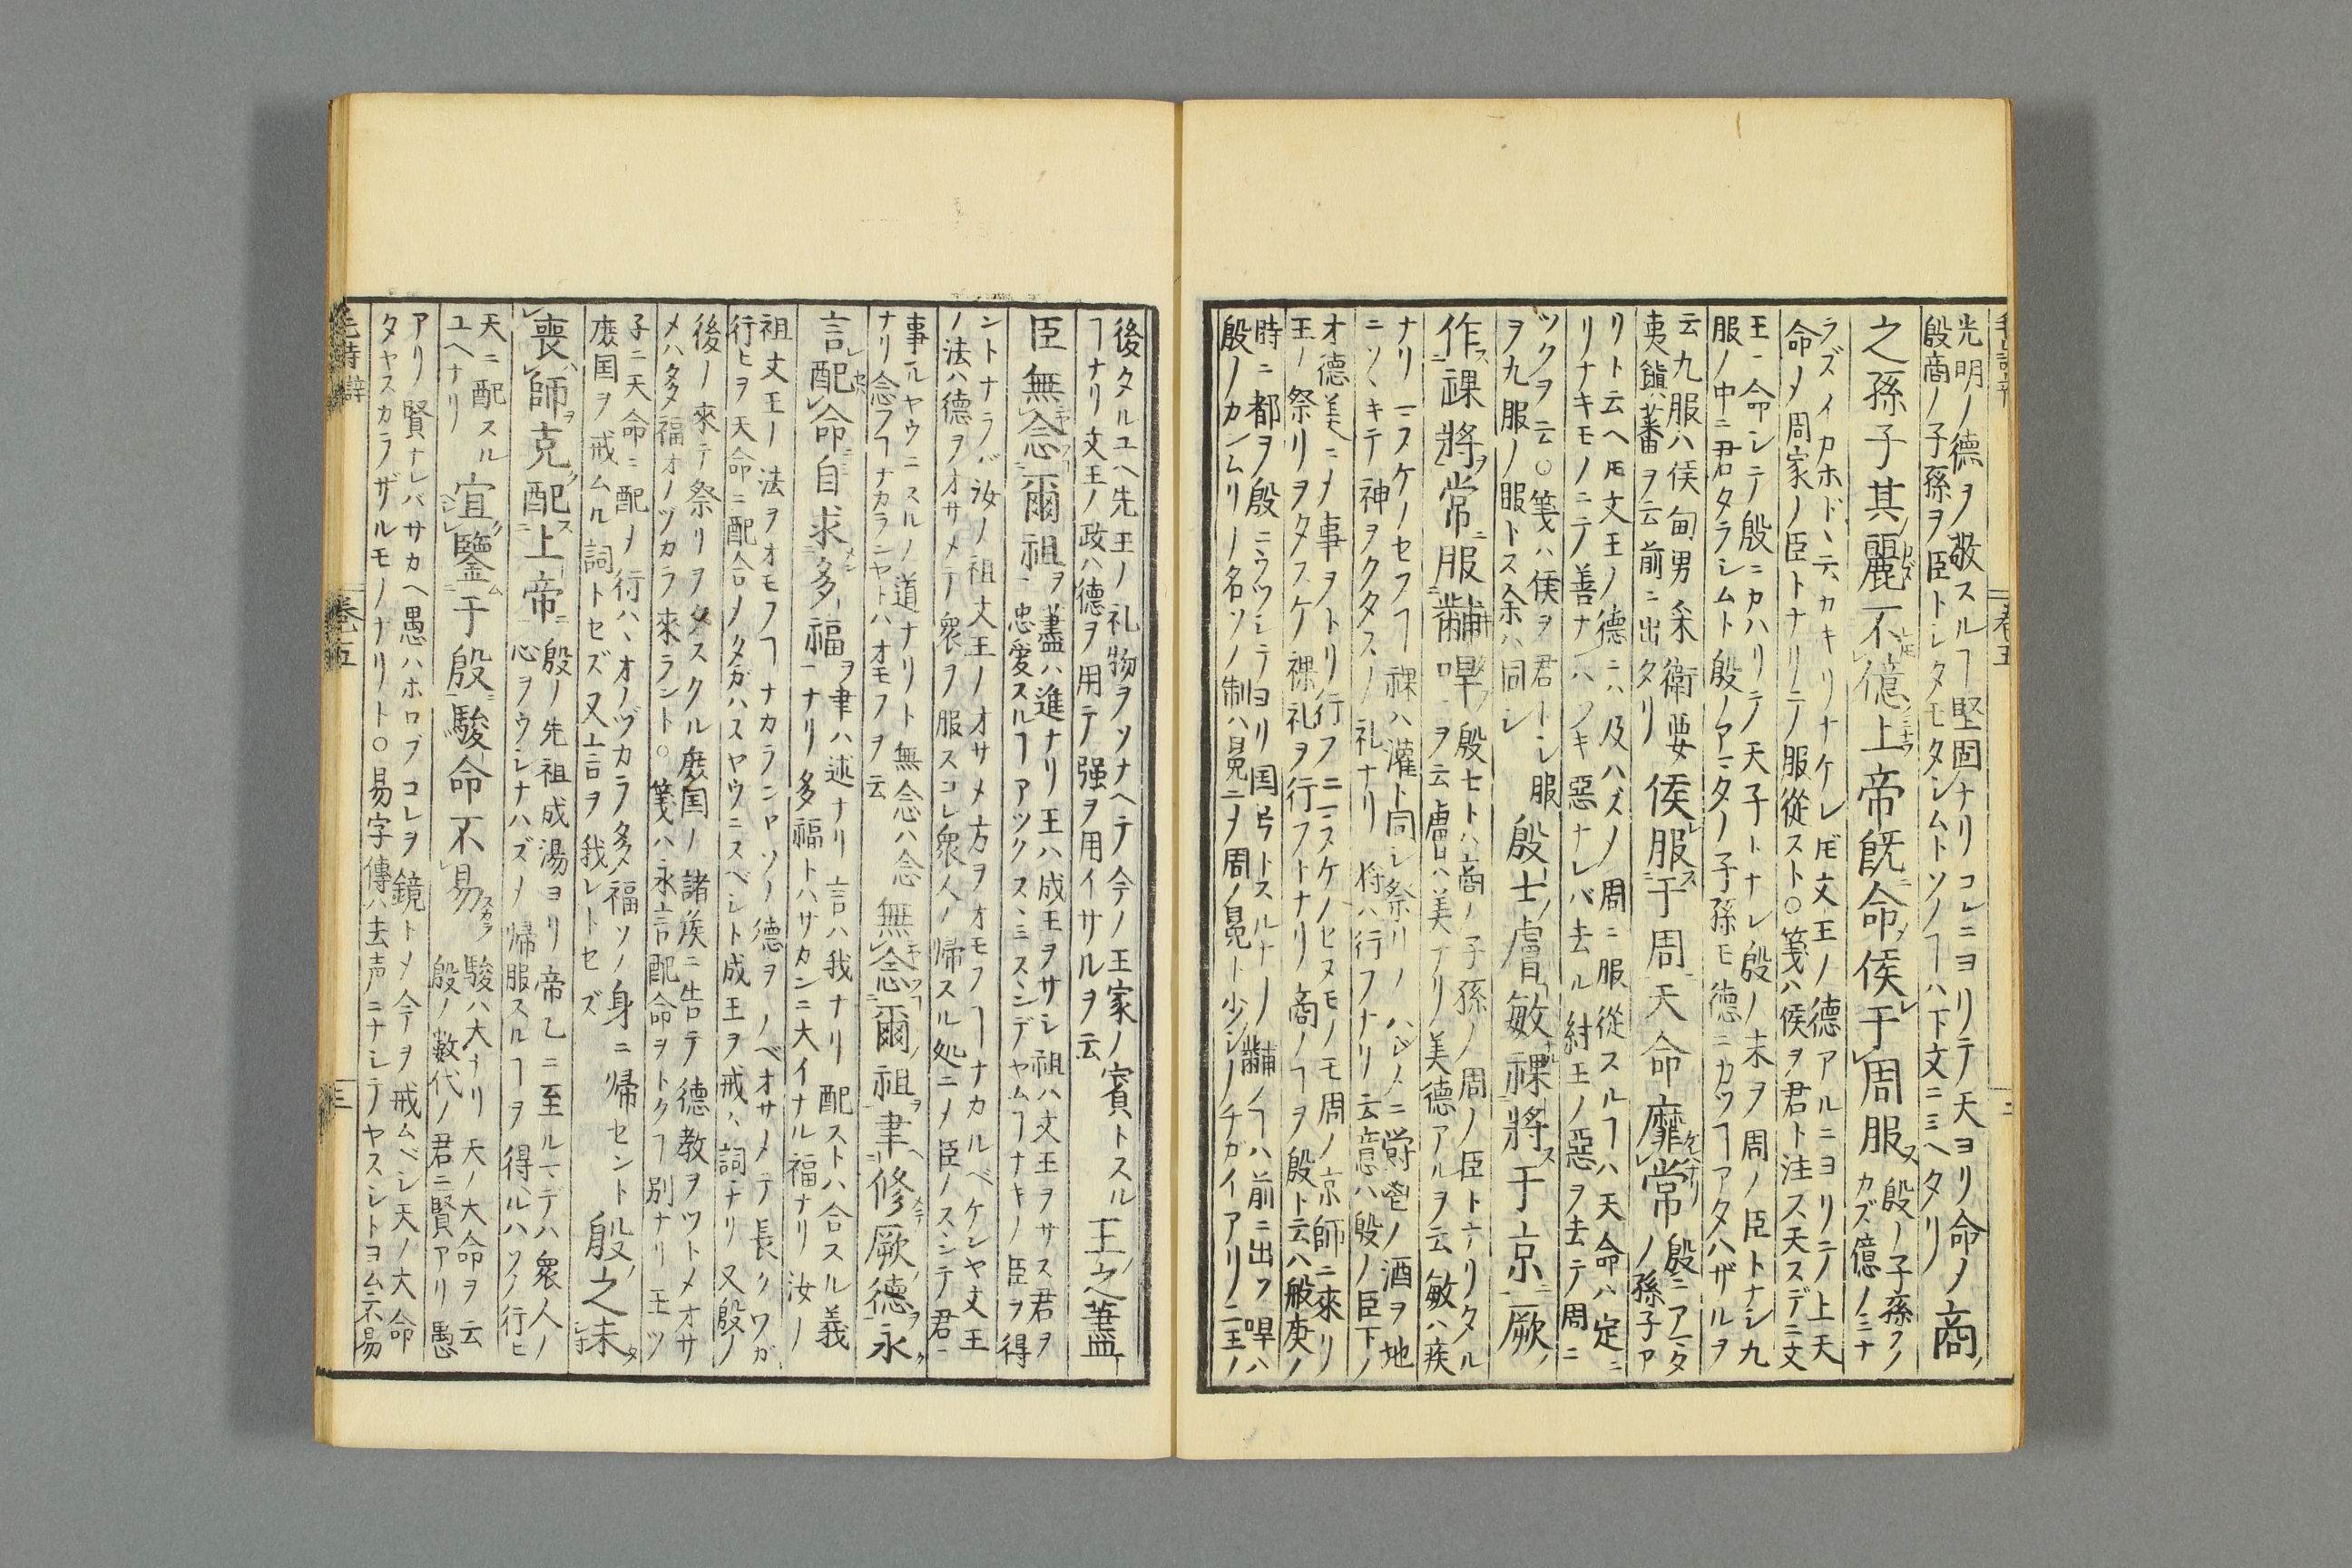 光明ノ德ヲ敬スルヿ堅固ナリコレニヨリテ天ヨリ命ノ商
殷商ノ子孫ヲ臣トシタモタシムトソノヿハ下文ニミヘタリ
之孫子其麗不億上帝既命侯于周服
殷ノ子孫ソノ
カズ億ノミナ
ラズイカホドヽテカキリナケレ𪜈文王ノ德アルニヨリテノ上天
命メ周家ノ臣トナリテノ服從スト○箋ハ侯ヲ君ト注ス天スデニ文
王ニ命シテ殷ニカハリテ天子トナレ殷ノ末ヲ周ノ臣トナシ九
服ノ中ニ君タラシムト殷ノアマタノ子孫モ德ニカツヿアタハザルヲ
云九服ハ侯甸男采衛要
夷鎭蕃ヲ云前ニ出タリ
侯服于周天命靡常
殷ニアマタ
ノ孫子ア
リト云ヘ𪜈文王ノ德ニハ及ハズノ周ニ服從スルヿハ天命ハ定ニ
リナキモノニテ善ナハツキ惡ナレバ去ル紂王ノ惡ヲ去テ周ニ
ツクヲ云○箋ハ侯ヲ君トシ服
ヲ九服ノ服トス余ハ同シ
殷士膚敏祼將于京厥
作祼將常服黼冔
殷士トハ商ノ子孫ノ周ノ臣トナリタル
ヲ云膚ハ美ナリ美德アルヲ云敏ハ疾
ナリ
祼ハ灌ト同シ祭リノハシメニ
ノ酒ヲ地
ニソヽキテ神ヲクタスノ礼ナリ將ハ行フナリ云意ハ殷ノ臣下ノ
オ德美ニメ事ヲトリ行フニ
周ノ京師ニ來リ
王ノ祭リヲタスケ祼礼ヲ行フトナリ商ノヿヲ殷ト云ハ般庚ノ
時ニ都ヲ殷ニウツシテヨリ国号トスルナリ黼ノヿハ前ニ出ツ冔ハ
殷ノカンムリノ名ソノ制ハ冕ニメ周ノ冕ト少シノチガイアリ二王ノ
後タルユヘ先王ノ礼物ヲソナヘテ今ノ王家ノ賓トスル
ヿナリ文王ノ政ハ德ヲ用テ强ヲ用イサルヲ云
王之藎
臣無念爾祖
藎ハ進ナリ王ハ成王ヲサシ祖ハ文王ヲサス君ヲ
忠愛スルヿアツクスヽミスヽンデヤムヿナキノ臣ヲ得
ントナラバ汝ノ祖文王ノオサメ方ヲオモフヿナカルベケンヤ文王
ノ法ハ德ヲオサメテ衆ヲ服スコレ衆人ノ帰スル処ニメ臣ノスヽンテ君ニ
事ルヤウニスルノ道ナリト無念ハ念
ナリ念フヿナカランヤトハオモフヲ云
無念爾祖聿修厥德永
言配命自求多福
聿ハ述ナリ言ハ我ナリ配ストハ合スル義
ナリ多福トハサカンニ大イナル福ナリ汝ノ
祖文王ノ法ヲオモフヿナカランヤソノ德ヲノベオサメテ長クワガ
行ヒヲ天命ニ配合メタガハスヤウニスベシト成王ヲ戒ヽ詞ナリ又殷ノ
後ノ來テ祭リヲタスクル庶国ノ諸侯ニ告テ德教ヲツトメオサ
メハ多福オノヅカラ來ラント○箋ハ永言配命ヲトクヿ別ナリ王ツ
子ニ天命ニ配メ行ハヽオノヅカラ多福ソノ身ニ帰セント
庶国ヲ戒ムル詞トセズ又言ヲ我レトセズ
殷之未
喪師克配上帝
殷ノ先祖成湯ヨリ帝乙ニ至ルマデハ衆人ノ
心ヲウシナハズメ帰服スルヿヲ得ルハソノ行ヒ
天ニ配スル
ユヘナリ
宜鑒于殷駿命不易
駿ハ大ナリ天ノ大命ヲ云
殷ノ数代ノ君ニ賢アリ愚
アリ賢ナレバサカヘ愚ハホロブコレヲ鏡トメ今ヲ戒ムベシ天ノ大命
タヤスカラザルモノナリト○易字傳ハ去声ニナシテヤスシトヨム不易
毛詩
卷五
三